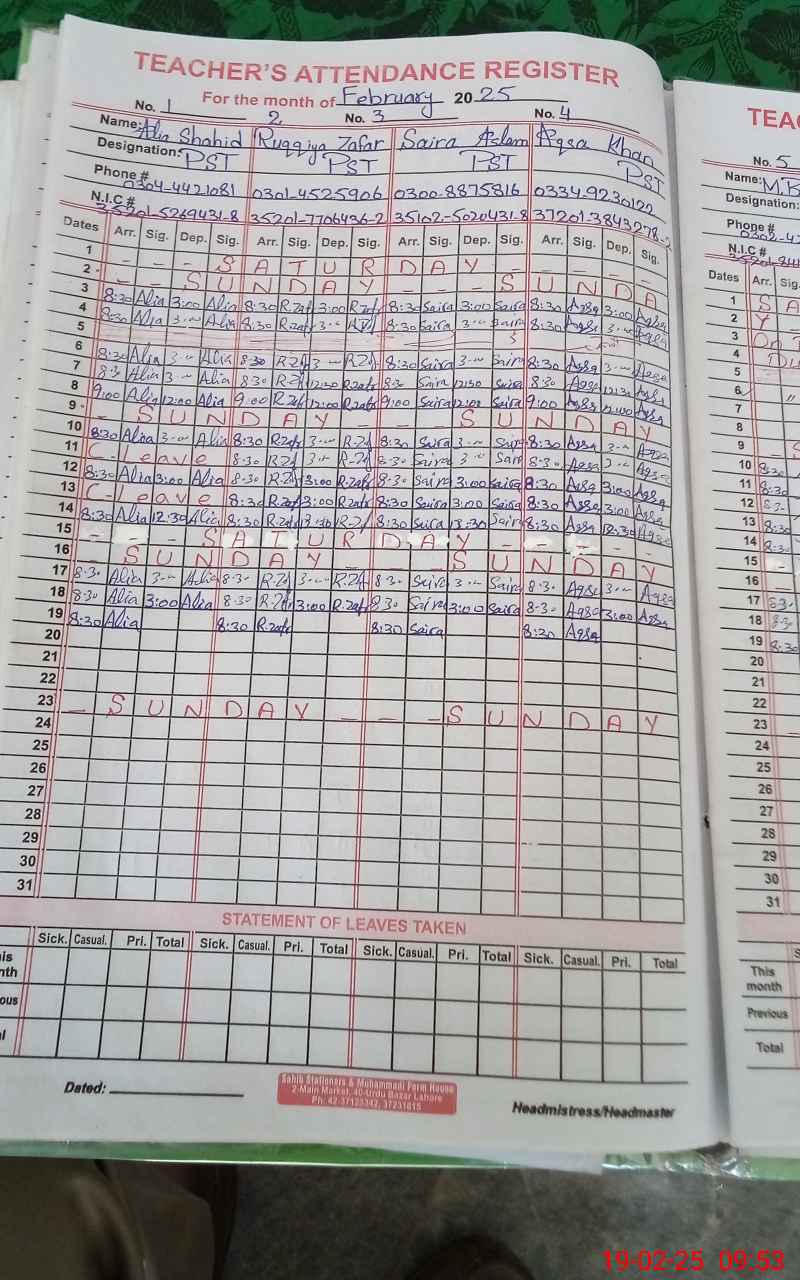 TEACHER'S ATTENDANCE REGISTER
For the month of February 2025
No. 1 2 No. 3 No. 4
Name: Alia Shahid Ruqqiya Zafar Saira Aslam Aqsa Khan
Designation: PST PST PST PST
Phone # 0304-4421081 0301-4525906 0300-8875816 0334-9230122
N.I.C # 35201-5269431-8 35201-7706436-2 35102-5020431-8 37201-3843278-
Dates Arr. Sig. Dep. Sig. Arr. Sig. Dep. Sig. Arr. Sig. Dep. Sig. Arr. Sig. Dep. Sig.
1 - - - S A T U R D A Y - - - - -
2 - - S U N D A Y - - - S U N D A
3 8:30 Alia 3:00 Alia 8:30 R.zaf 3:00 R.zaf 8:30 Saira 3:00 Saira 8:30 Aqsa 3:00 Aqsa
4 8:30 Alia 3-- Alia 8:30 R.zaf 3-- R.Zf 8:30 Saira 3-- Saira 8:30 Aqsa 3-- Aqsa
5
6 8:30 Alia 3-- Alia 8:30 R.Zf 3-- R.Zf 8:30 Saira 3-- Saira 8:30 Aqsa 3-- Aqsa
7 8:30 Alia 3-- Alia 8:30 R.Zf 12:30 R.zafr 8:30 Saira 12:30 Saira 8:30 Aqsa 12:30 Aqsa
8 9:00 Alia 12:00 Alia 9:00 R.zaf 12:00 R.zafr 9:00 Saira 12:00 Saira 9:00 Aqsa 12:00 Aqsa
9 - S U N D A Y - - - S U N D A Y
10 8:30 Alia 3-- Alia 8:30 R.zafr 3-- R.Zf 8:30 Saira 3-- Saira 8:30 Aqsa 3-- Aqsa
11 C-Leave 8:30 R.Zf 3-- R.Zf 8:30 Saira 3-- Saira 8:30 Aqsa 3-- Aqsa
12 8:30 Alia 3:00 Alia 8:30 R.Zf 3:00 R.zafr 8:30 Saira 3:00 Saira 8:30 Aqsa 3:00 Aqsa
13 C-Leave 8:30 R.zaf 3:00 R.zafr 8:30 Saira 3:00 Saira 8:30 Aqsa 3:00 Aqsa
14 8:30 Alia 12:30 Alia 8:30 R.zafr R.Zf 8:30 Saira 12:30 Saira 8:30 Aqsa 12:30 Aqsa
15 - - - S A T U R D A Y - - - - -
16 - S U N D A Y - - - S U N D A Y
17 8:30 Alia 3-- Alia 8:30 R.Zf 3-- R.Zf 8:30 Saira 3-- Saira 8:30 Aqsa 3-- Aqsa
18 8:30 Alia 3:00 Alia 8:30 R.Zafr 3:00 R.zafr 8:30 Saira 3:00 Saira 8:30 Aqsa 3:00 Aqsa
19 8:30 Alia 8:30 R.zafr 8:30 Saira 8:30 Aqsa
20
21
22
23 - S U N D A Y - - - S U N D A Y
24
25
26
27
28
29
30
31
STATEMENT OF LEAVES TAKEN
Sick. Casual. Pri. Total Sick. Casual. Pri. Total Sick. Casual. Pri. Total Sick. Casual. Pri. Total
Dated:
Sahib Stationers & Muhammadi Form House
2-Main Market, 40-Urdu Bazar Lahore
Ph: 42-37123342, 37231815
Headmistress/Headmaster
TEAC
No. 5
Name: M.B
Designation:
Phone #
N.I.C #
Dates Arr. Sig.
1 S A
2 Y -
3 On
4 Du
5
6
7
8
9 - S
10 8:30
11 8:30
12 8:30
13 8:30
14 8:30
15
16
17 8:30
18 8:30
19 8:30
20
21
22
23
24
25
26
27
28
29
30
31
This month
Previous
Total
19-02-25 09:53